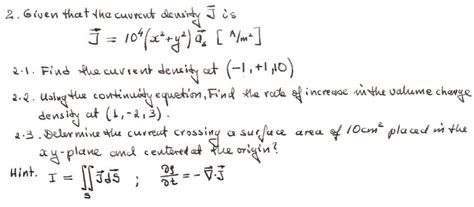 2. Given that the current density J⃗ is
J⃗ = 10⁴(x²+y²) a⃗z [A/m²]
2.1. Find the current density at (-1,+1,10)
2.2. Using the continuity equation, Find the rate of increase in the volume charge
density at (1,-2,3).
2.3. Determine the current crossing a surface area of 10cm² placed in the
xy-plane and centered at the origin?
Hint. I = ∬_S J⃗ dS⃗ ; ∂ϱ/∂t = -∇⃗·J⃗